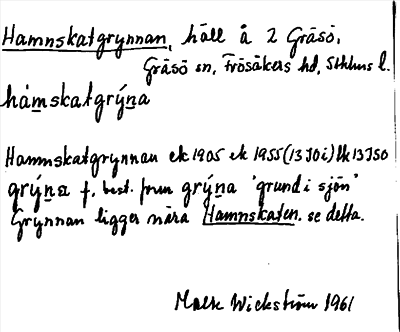 Hamnskatgrynnan, häll å 2 Gräsö,
Gräsö sn, Frösåkers hd, Sthlms l.
håmskatgrýna
Hamnskatgrynnan ek 1905 ek 1955 (13 I0 i) lk 13 I50
grýna f. best. form grýna 'grund i sjön'
Grynnan ligger nära Hamnskaten. se detta.
Mats Wickström 1961